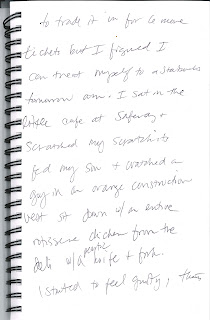 to trade it in for 6 more
tickets but I figured I
can treat myself to a Starbucks
tomorrow am. I sat in the
little cafe at Safeway &
scratched my scratchits
fed my son & watched a
guy in an orange construction
vest sit down w/ an entire
rotisserie chicken from the
deli w/ a plastic knife & fork.
I started to feel guilty, then